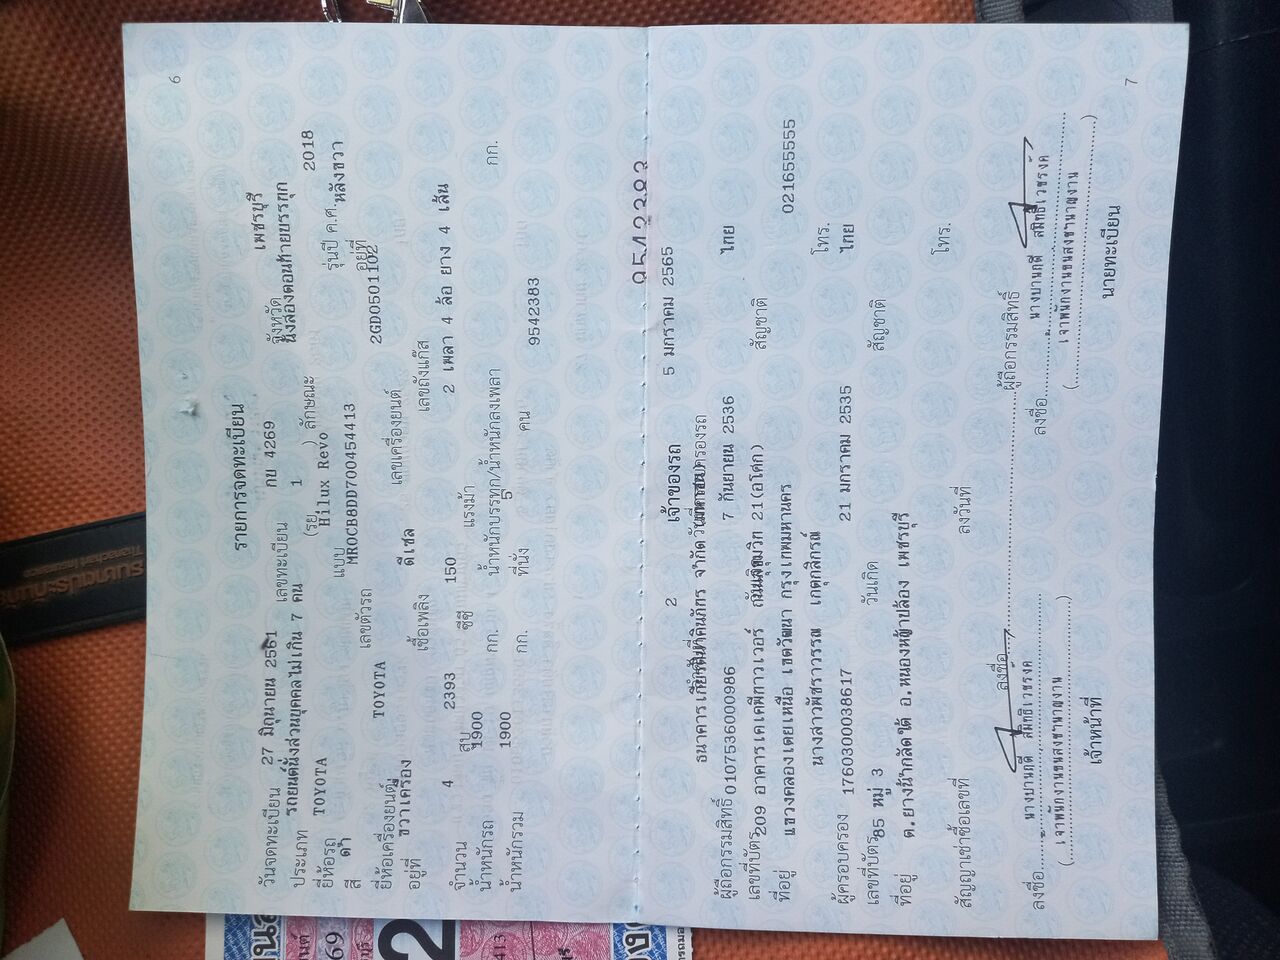 6
รายการจดทะเบียน
วันจดทะเบียน 27 มิถุนายน 2561 เลขทะเบียน กบ 4269 จังหวัด เพชรบุรี
ประเภท รถยนต์นั่งส่วนบุคคลไม่เกิน 7 คน (รย. 1 ) ลักษณะ นั่งสองตอนท้ายบรรทุก
ยี่ห้อรถ TOYOTA แบบ Hilux Revo รุ่นปี ค.ศ. 2018
สี ดำ เลขตัวรถ MR0CB8DD700454413 อยู่ที่ หลังขวา
ยี่ห้อเครื่องยนต์ TOYOTA เลขเครื่องยนต์ 2GD0501102
อยู่ที่ ขวาเครื่อง เชื้อเพลิง ดีเซล เลขถังแก๊ส
จำนวน 4 สูบ 2393 ซีซี 150 แรงม้า 2 เพลา 4 ล้อ ยาง 4 เส้น
น้ำหนักรถ 1900 กก. น้ำหนักบรรทุก/น้ำหนักลงเพลา กก.
น้ำหนักรวม 1900 กก. ที่นั่ง 5 คน 9542383
9542383
เจ้าของรถ
2 5 มกราคม 2565
ผู้ถือกรรมสิทธิ์ ธนาคารเกียรตินาคินภัทร จำกัด (มหาชน)
เลขที่บัตร 0107536000986 7 กันยายน 2536 สัญชาติ ไทย
ที่อยู่ 209 อาคารเคเคพีทาวเวอร์ ถนนสุขุมวิท 21(อโศก)
แขวงคลองเตยเหนือ เขตวัฒนา กรุงเทพมหานคร โทร. 021655555
ผู้ครอบครอง นางสาวพัชราวรรณ เกตุกสิกรณ์
เลขที่บัตร 1760300038617 วันเกิด 21 มกราคม 2535 สัญชาติ ไทย
ที่อยู่ 85 หมู่ 3
ต.ยางน้ำกลัดใต้ อ.หนองหญ้าปล้อง เพชรบุรี โทร.
สัญญาเช่าซื้อเลขที่ ลงวันที่
ลงชื่อ ผู้ถือกรรมสิทธิ์
ลงชื่อ ลงชื่อ
เจ้าหน้าที่ นายทะเบียน
7
ธนชาตประกันภัย
Thanachart Insurance